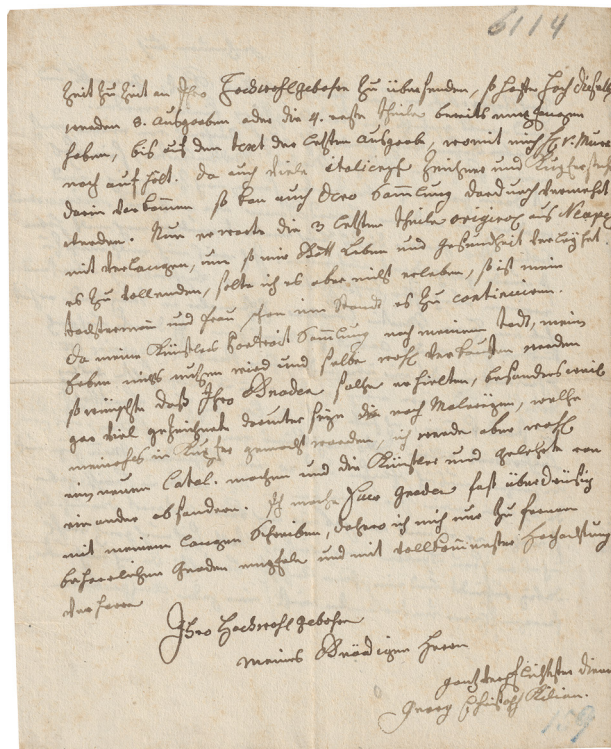 6114
Zeit zu Zeit an Ihro Hochwohlgebohrn zu übersenden, so
werden 8. ausgeben oder die 4. erste Theile bereits
haben, bis auf den text der letzten ausgabe, womit mich H. v. Murr
noch auf hält. da auch viele italienische Zeichner und Kupferstecher
darin vorkommen so kan auch Dero Sammlung dardurch vermehrt
werden. Nun erwarte die 3 letzten Theile original aus Neapel
mit verlangen, um so mir Gott Leben und gesundheit verleyhet
es zu vollenden, solte ich es aber nicht erleben, so ist mein
und Frau schon im Stande es zu continuiren.
Da meine Künstlers Portrait Sammlung nach meinem Todt, mein
haben nichts nutzen wird und selbe wohl verkauffen werden
so wünschte daß Ihro Gnaden solche erhielten, besonders weil
gar viel gezeichnete darunter seyn die nach Malereyen, welche
niemahls in Kupfer gemacht worden, ich werde aber wohl
ein neuen Catal. machen und die Künstler und gelehrte von
ein ander absondern. Ich mache Euer Gnaden fast überdrüßig
mit meinem langen Schreiben, dahero ich mich nur zu fernern
beharrlichen Gnaden empfele und mit vollkommenster Hochachtung
verharre
Ihro Hochwohlgebohrn
meines Gnädigen Herrn
gantz verpflichtester diener
Georg Christoph Kilian.
159